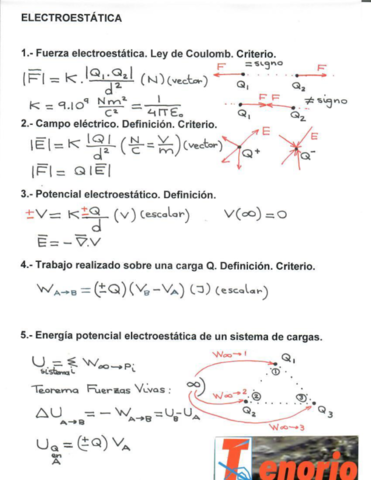 ELECTROESTÁTICA
1.- Fuerza electroestática. Ley de Coulomb. Criterio.
|F̅| = K · |Q₁·Q₂| / d² (N) (vector)
F = signo F
Q₁ Q₂
K = 9.10⁹ Nm²/C² = 1/4πε₀
F F ≠ signo
Q₁ Q₂
2.- Campo eléctrico. Definición. Criterio.
|E̅| = K |Q| / d² (N/C = V/m) (vector)
E Q⁺ E Q⁻
|F̅| = Q|E̅|
3.- Potencial electroestático. Definición.
±V = K ±Q / d (V) (escalar) V(∞) = 0
E̅ = -∇̅.V
4.- Trabajo realizado sobre una carga Q. Definición. Criterio.
W A→B = (±Q)(V_B - V_A) (J) (escalar)
5.- Energía potencial electroestática de un sistema de cargas.
U sistema = Σ W ∞→Pi
W∞→1 Q₁
①
Teorema Fuerzas Vivas:
∞ W∞→2 ② ③
Q₂ Q₃
ΔU A→B = -W A→B = U_B - U_A
W∞→3
U_Q en A = (±Q) V_A
Tenorio